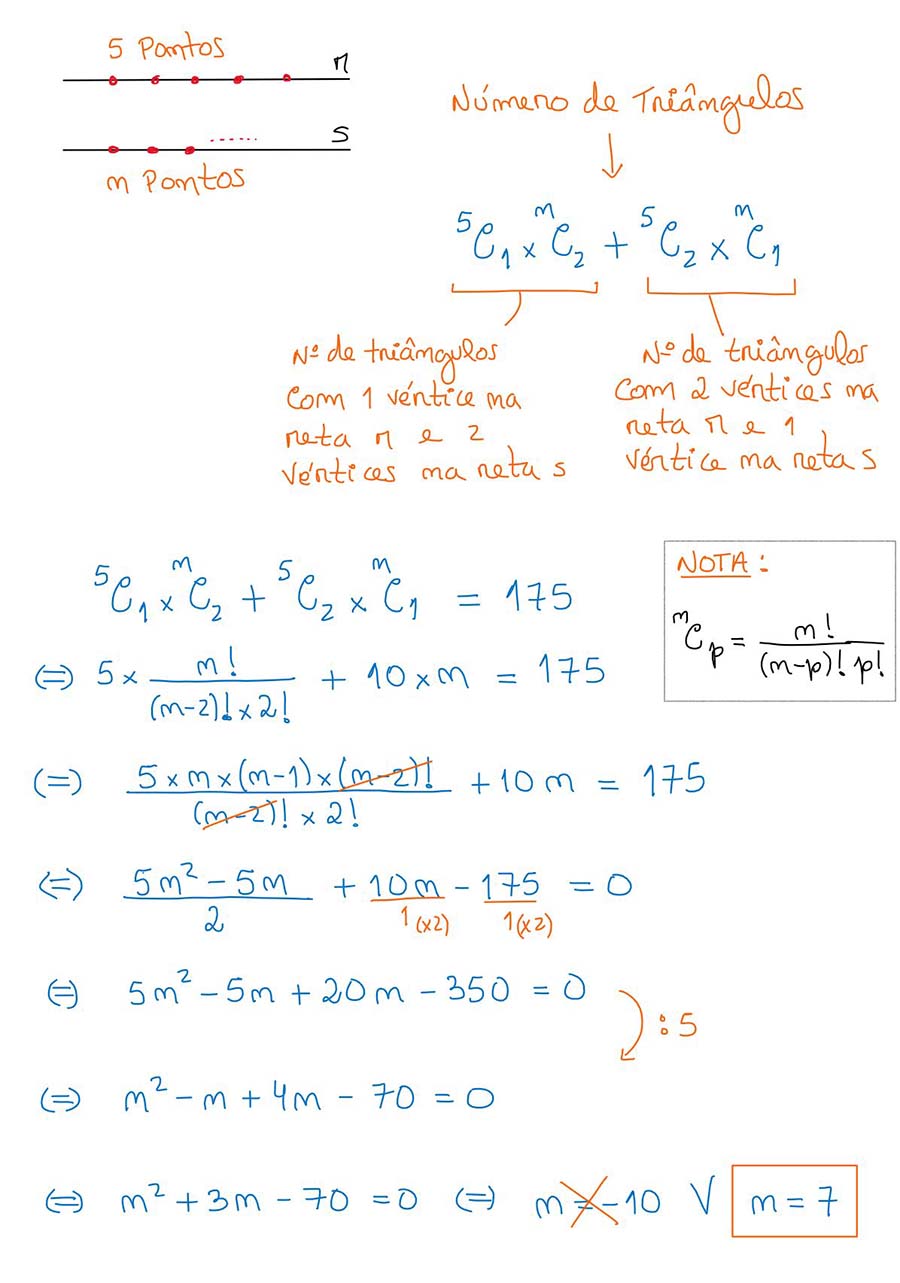 5 Pontos
r
s
n Pontos
Número de Triângulos
⁵C₁ × ⁿC₂ + ⁵C₂ × ⁿC₁
Nº de triângulos
com 1 vértice na
reta r e 2
vértices na reta s
Nº de triângulos
com 2 vértices na
reta r e 1
vértice na reta s
⁵C₁ × ⁿC₂ + ⁵C₂ × ⁿC₁ = 175
NOTA:
ⁿCp = n! / (n-p)! p!
(=) 5 × n! / (n-2)! × 2! + 10 × n = 175
(=) 5 × n × (n-1) × (n-2)! / (n-2)! × 2! + 10n = 175
(=) 5n² - 5n / 2 + 10n / 1 (×2) - 175 / 1 (×2) = 0
(=) 5n² - 5n + 20n - 350 = 0
:5
(=) n² - n + 4n - 70 = 0
(=) n² + 3n - 70 = 0 (=) n = -10 V n = 7